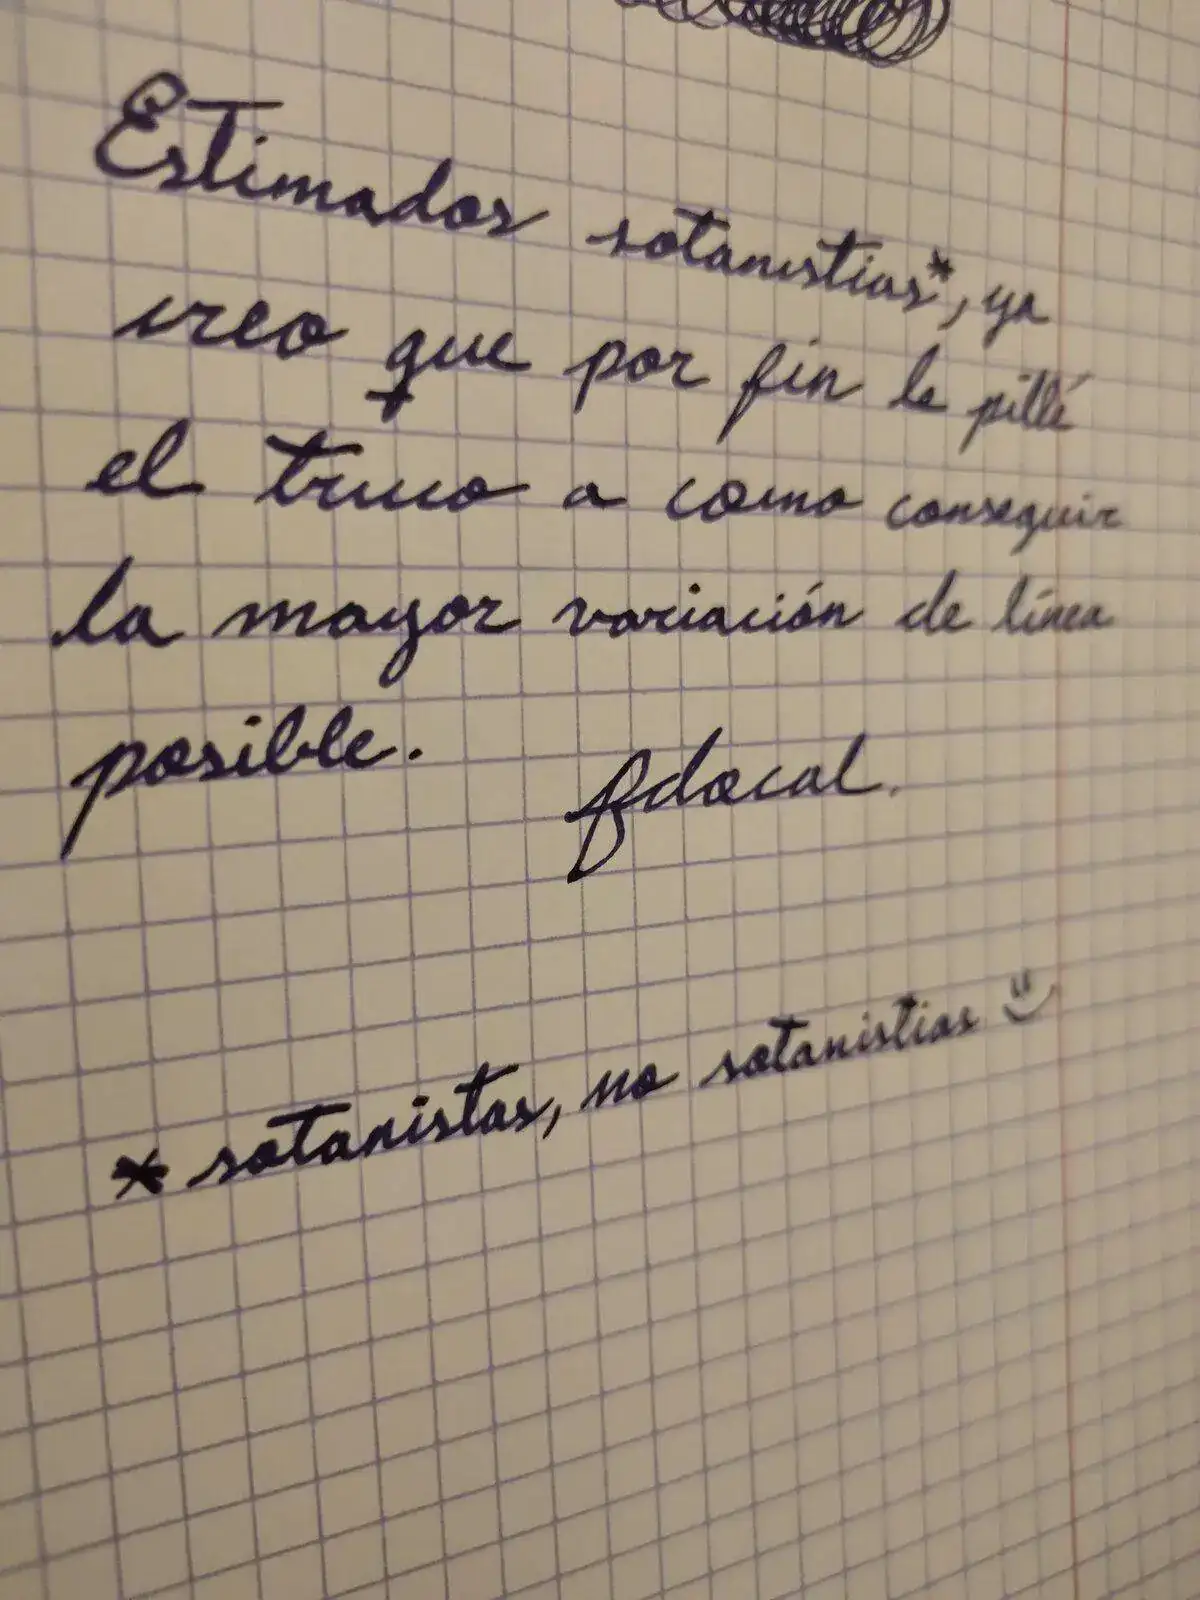 Estimados sotanistias*, ya
creo que por fin le pillé
el truco a como conseguir
la mayor variación de línea
posible.
fdocal.
* sotanistas, no sotanistias